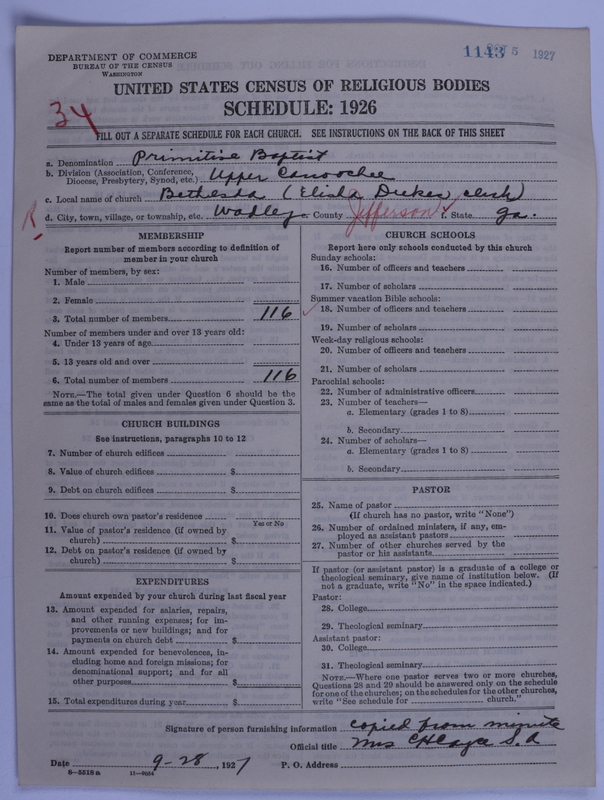 DEPARTMENT OF COMMERCE
BUREAU OF THE CENSUS
WASHINGTON
1143 5 1927
UNITED STATES CENSUS OF RELIGIOUS BODIES
SCHEDULE: 1926
34
FILL OUT A SEPARATE SCHEDULE FOR EACH CHURCH. SEE INSTRUCTIONS ON THE BACK OF THIS SHEET
a. Denomination Primitive Baptist
b. Division (Association, Conference, Diocese, Presbytery, Synod, etc.) Upper Canoochee
c. Local name of church Bethesda (Elisha Dukes, clerk)
R d. City, town, village, or township, etc. Wadley County Jefferson State Ga.
MEMBERSHIP
Report number of members according to definition of
member in your church
Number of members, by sex:
1. Male
2. Female
3. Total number of members 116
Number of members under and over 13 years old:
4. Under 13 years of age
5. 13 years old and over
6. Total number of members 116
NOTE.—The total given under Question 6 should be the
same as the total of males and females given under Question 3.
CHURCH BUILDINGS
See instructions, paragraphs 10 to 12
7. Number of church edifices
8. Value of church edifices $
9. Debt on church edifices $
10. Does church own pastor's residence
Yes or No
11. Value of pastor's residence (if owned by
church) $
12. Debt on pastor's residence (if owned by
church) $
EXPENDITURES
Amount expended by your church during last fiscal year
13. Amount expended for salaries, repairs,
and other running expenses; for im-
provements or new buildings; and for
payments on church debt $
14. Amount expended for benevolences, in-
cluding home and foreign missions; for
denominational support; and for all
other purposes $
15. Total expenditures during year $
CHURCH SCHOOLS
Report here only schools conducted by this church
Sunday schools:
16. Number of officers and teachers
17. Number of scholars
Summer vacation Bible schools:
18. Number of officers and teachers
19. Number of scholars
Week-day religious schools:
20. Number of officers and teachers
21. Number of scholars
Parochial schools:
22. Number of administrative officers
23. Number of teachers—
a. Elementary (grades 1 to 8)
b. Secondary
24. Number of scholars—
a. Elementary (grades 1 to 8)
b. Secondary
PASTOR
25. Name of pastor
(If church has no pastor, write "None")
26. Number of ordained ministers, if any, em-
ployed as assistant pastors
27. Number of other churches served by the
pastor or his assistants
If pastor (or assistant pastor) is a graduate of a college or
theological seminary, give name of institution below. (If
not a graduate, write "No" in the space indicated.)
Pastor:
28. College
29. Theological seminary
Assistant pastor:
30. College
31. Theological seminary
NOTE.—Where one pastor serves two or more churches,
Questions 28 and 29 should be answered only on the schedule
for one of the churches; on the schedules for the other churches,
write "See schedule for church."
Signature of person furnishing information copied from minute
Official title Mrs S. A
Date 9-28, 1927 P. O. Address
8-5518a 11-9054